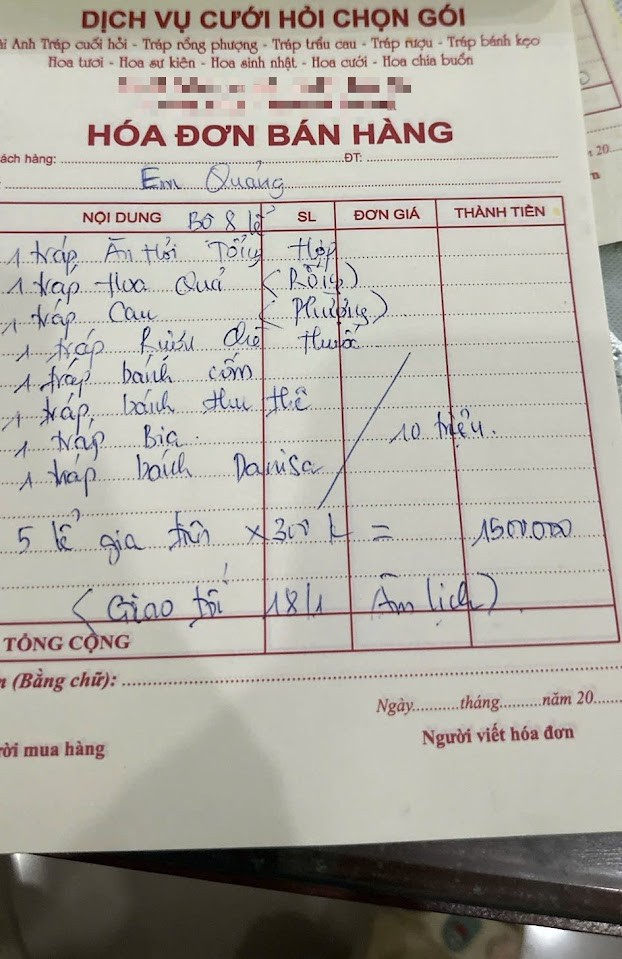 DỊCH VỤ CƯỚI HỎI CHỌN GÓI
ài Anh Tráp cuối hỏi - Tráp rồng phượng - Tráp trầu cau - Tráp rượu - Tráp bánh kẹo
Hoa tươi - Hoa sự kiện - Hoa sinh nhật - Hoa cưới - Hoa chia buồn
HÓA ĐƠN BÁN HÀNG
ách hàng: ĐT:
Em Quảng
NỘI DUNG Bộ 8 lễ SL ĐƠN GIÁ THÀNH TIỀN
1 tráp Ăn Hỏi Tổng Hợp
1 tráp Hoa Quả (Rồng)
1 tráp Cau (Phượng)
1 tráp Rượu Chè thuốc
1 tráp bánh cốm
1 tráp bánh thu thê
1 tráp Bia 10 triệu.
1 tráp bánh Danisa
5 lễ gia tiên x 300 k = 1500.000
(Giao tối 18/1 Âm lịch)
TỔNG CỘNG
n (Bằng chữ):
Ngày tháng năm 20
ời mua hàng Người viết hóa đơn
20
n